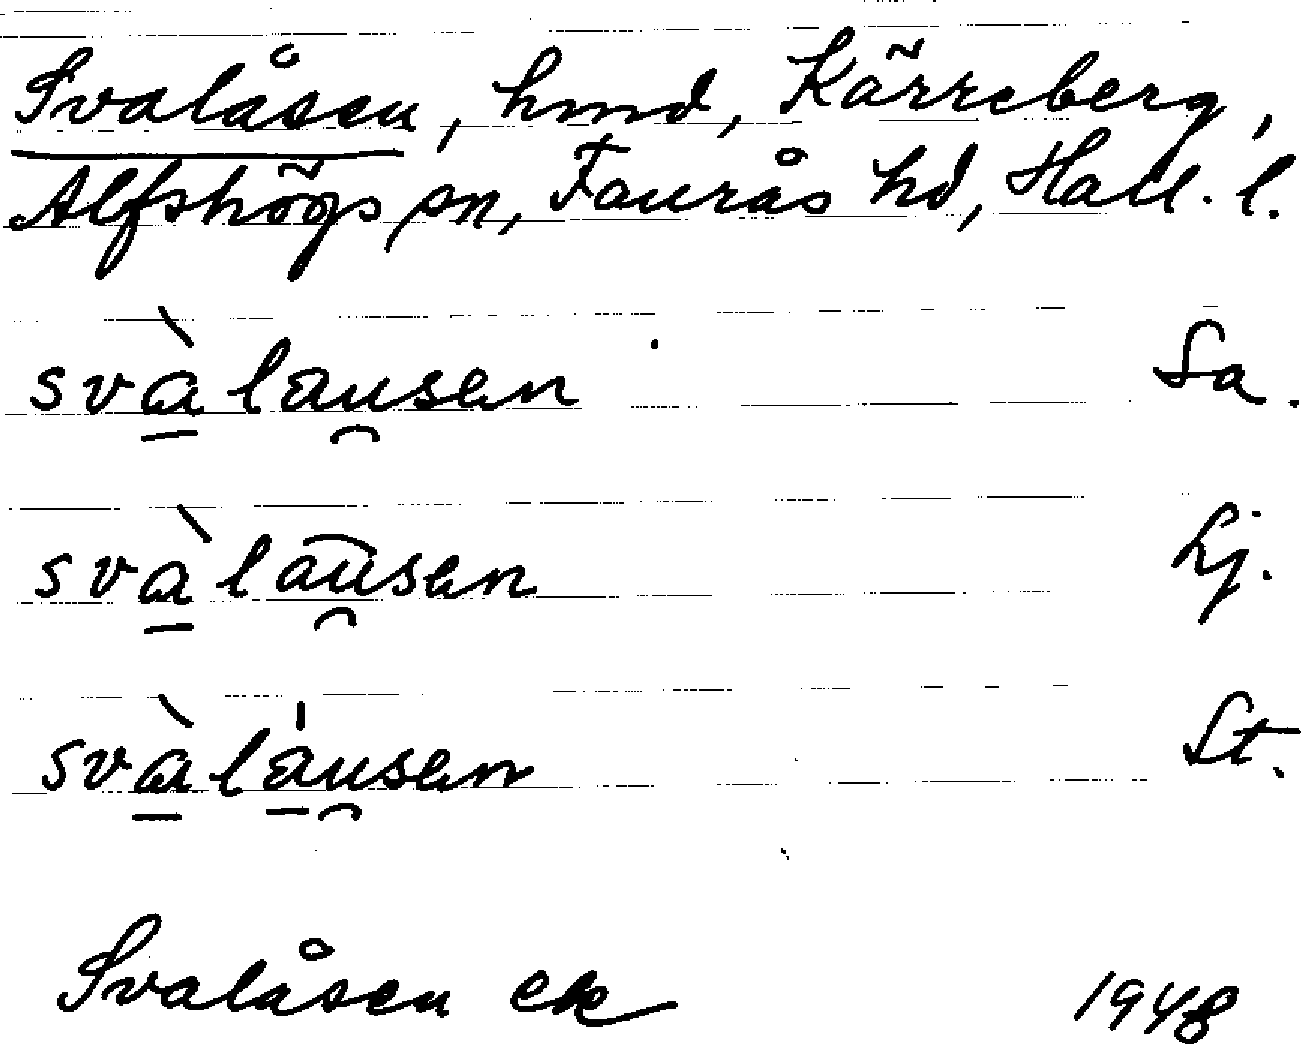 Svalåsen, hmd, Kärreberg,
Alfshögs sn, Faurås hd, Hall. l.
svà̱lau̯sen Sa.
svà̱lau̯sen Lj.
svà̱lá̱u̯sen St.
Svalåsen ek 1948